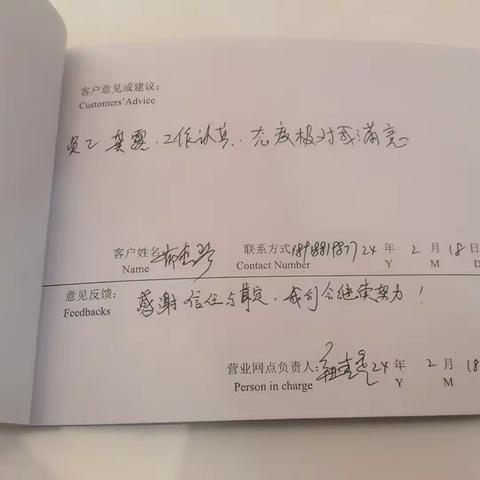 客户意见或建议：
Customers'Advice
员工龚露，工作认真，态度极对我满意
客户姓名 联系方式 24 年 2 月 18 日
Name Contact Number Y M D
意见反馈： 感谢信任与肯定，我们会继续努力！
Feedbacks
营业网点负责人： 24 年 2 月 18
Person in charge Y M